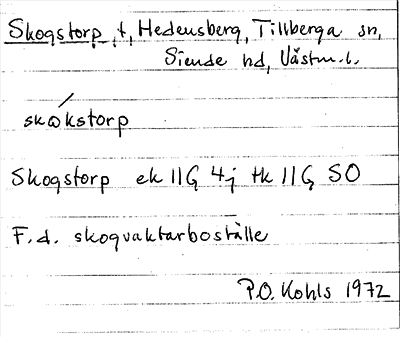 Skogstorp, t, Hedensberg, Tillberga sn,
Siende hd, Västm. l.
skokstorp
Skogstorp ek 11G 4j tk 11G SO
F.d. skogvaktarboställe
P.O. Kohls 1972